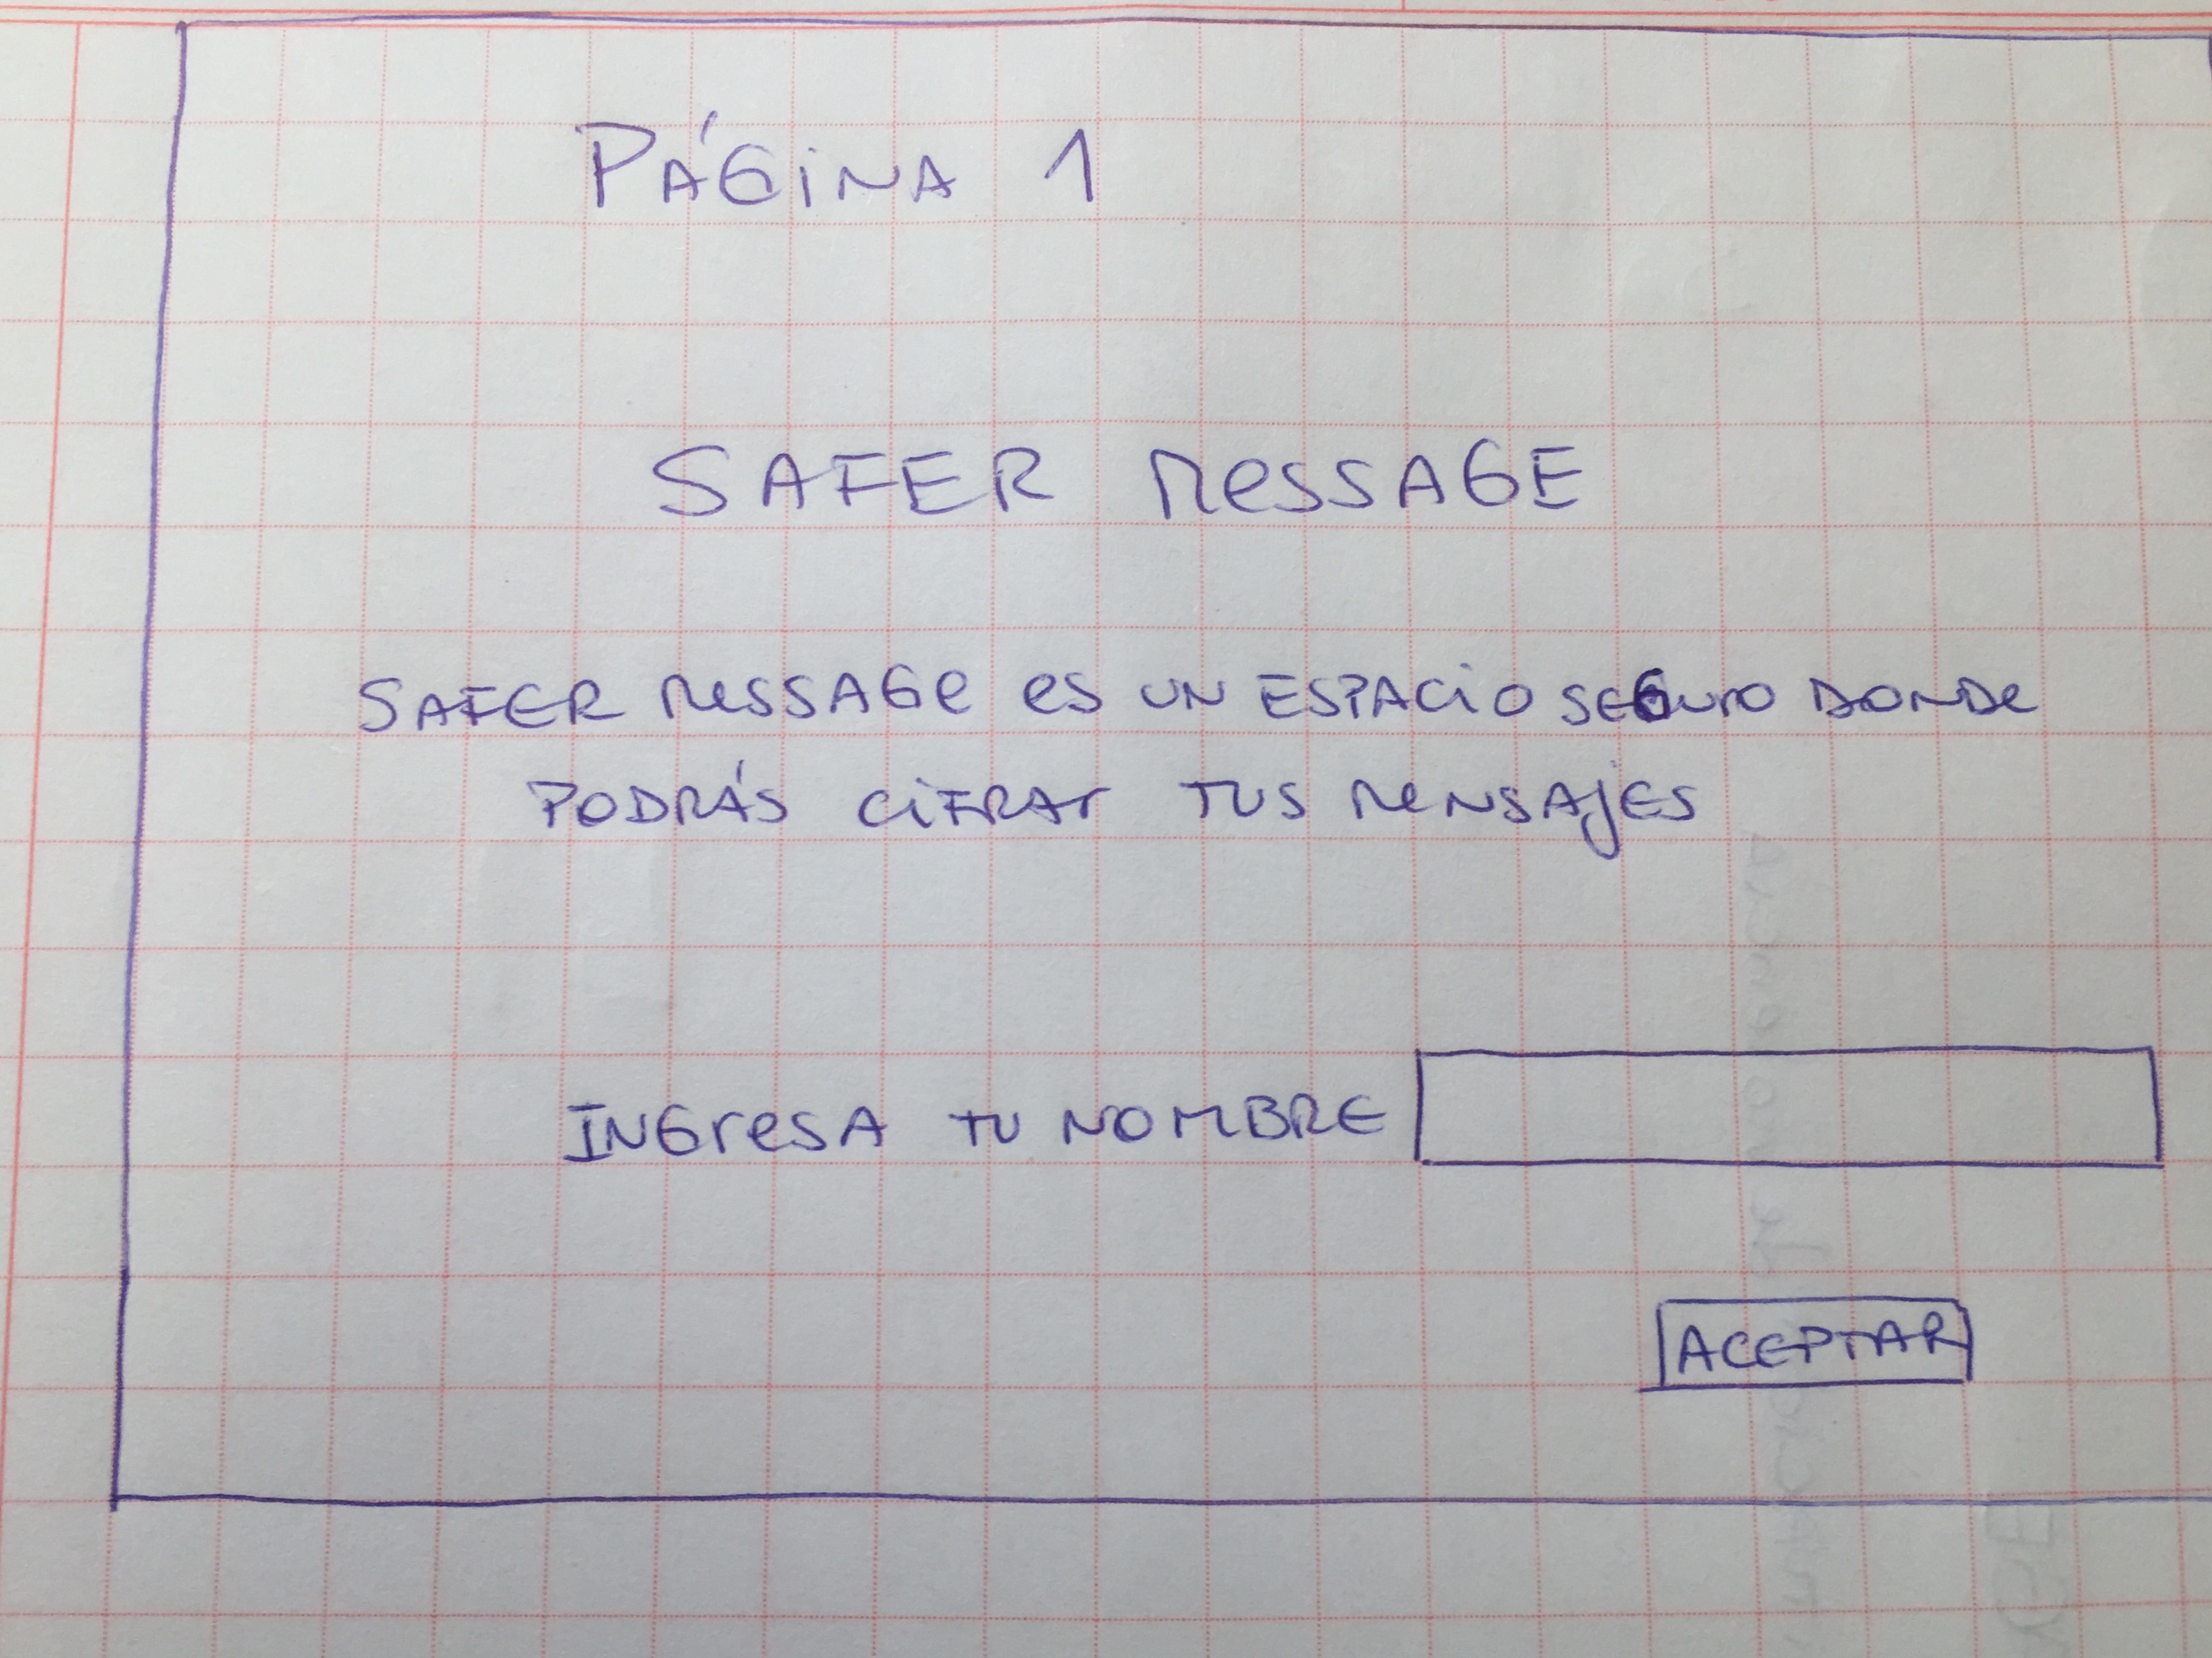 PÁGINA 1
SAFER MESSAGE
SAFER MESSAGE ES UN ESPACIO SEGURO DONDE
PODRÁS CIFRAR TUS MENSAJES
INGRESA TU NOMBRE
ACEPTAR